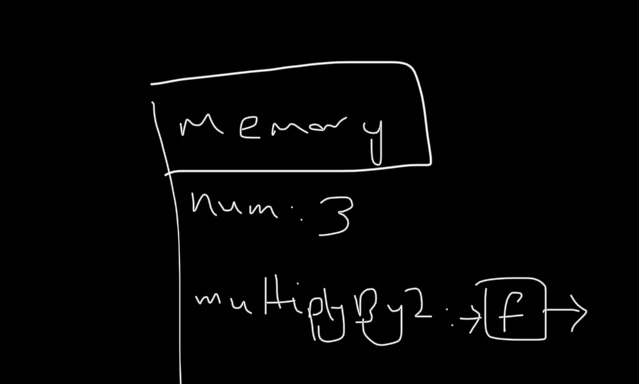 Memory
num: 3
multiplyBy2: →[f]→